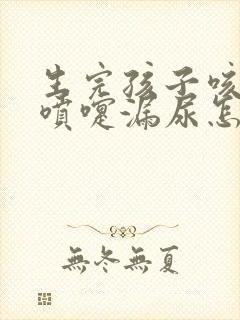 生完孩子咳
喷嚏漏尿怎
無冬無夏